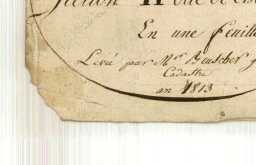 Section H
En une feuille
Levé par Mr. Beuscher
Cadastre
an 1813